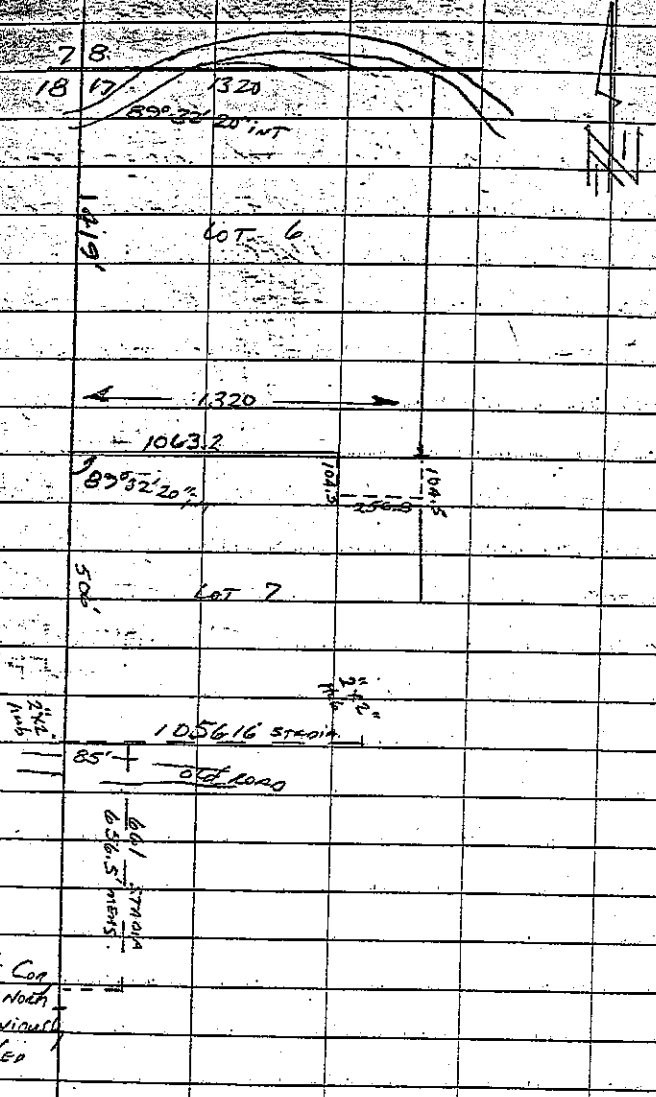 7 8
18 17
1320
89° 32' 20" INT
N
1419'
LOT 6
1320
1063.2
89°32'20"
104.5
104.5
256.8
506'
LOT 7
2"x2"
Hub
2"x2"
Hub
1056.16 STADIA
85'
OLD ROAD
661 STADIA
656.5' MEAS.
Cor
North